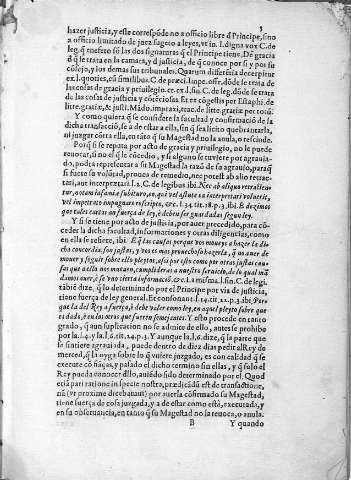 3
hazer justicia, y esse correspõde no a officio libre d Principe, sino
a officio limitado de juez sugeto a leyes, vt in l. digna vox C. de
leg. q̃ nuestro sõ las dos signaturas q̃ el Principe tiene. De gracia
d q̃ se trata en la camara, y d justicia, de q̃ conoce por si y por su
cõsejo, y los demas sus tribunales. Quarum differẽcia decerpitur
ex l. quoties, cũ similibus C. de præci. Impe. offr. dõde se trata de
las cosas de gracia y priuilegio. et ex l. sin C. de leg. dõde se trata
de las cosas de justicia y cõtẽciosa. Et ex cõgestis per Estaphi. de
litte. gratiæ, & justi. Mãdo. in praxi, trac. de litte. gratie per totũ.
Y como quiera q̃ se considere la facultad y confirmaciõ de la
dicha trãsactiõ, se a de estar a ella, sin q̃ sea licito quebrantarla,
ni juzgar cõtra ella, en tãto q̃ su Magestad no la anula, o rescinde.
Porq̃ si se reputa por acto de gracia y priuilegio, no le puede
reuocar, si no el q̃ le cõcedio, y si alguno se tuuiere por agrauia-
do, podra representar a su Magestad la razõ de su agrauio, paraq̃
si fuere su volũtad, prouea de remedio, nec potest ab alio retrac-
tari, aut interpretari. l. 2. C. de legibus ibi. Nec ab aliquo retracten-
tur,
gos tales cartas an fuerça de ley, è deben ser guardadas segun ley.
Y si se tiene por acto de justicia, por auer precedido, para cõ-
ceder la dicha facultad, informaciones y otras diligencias, como
en ella se refiere, ibi E q̃ las causas porque vos moueys a hazer la di-
cha concordia son justas, y a vos es mas prouechoso hazerla, q̃ no auer de
mouer y seguir sobre ello pleytos, assi por esto como por otras justas cau-
sas que a ello nos mueuan, cumplideras a nuestro seruicio, de lo qual mã-
damos auer, è se vuo cierta informaciõ, & c. La misma l. sin C. de legi.
tãbiẽ dize, q̃ lo determinado por el Principe por via de justicia,
tiene fuerça de ley general. Et consonant l. 14. tit. 22. p. 3. ibi. Por-
que la del Rey a fuerça, è deue valer como ley, en aquel pleyto sobre que
es dado, è en los otros que fueren semejantes. Y esto procede en tanto
grado, q̃ aun suplicacion no se admite de ello, antes se prohibe
por la. 14. y la l. 6. tit. 24. p. 3. Y aunque la l. 6. dize, q̃ la parte que
se sintiere agrauiada, puede dentro de diez dias pedir al Rey de
merced, q̃ la oyga sobre lo q̃ vuiere juzgado, es con calidad q̃ se
execute cõ fianças, y passado el dicho termino sin ellas, y q̃ solo el
Rey pueda conocer dello, auiẽdo sido determinado por el. Quod
etiã pari ratione in specie nostra, prædicãdũ est de transactione,
nã (vt proxime dicebamus) por auerla confirmado su Magestad,
tiene fuerça de cosa juzgada, y a de estar como està, executada, y
en su obseruancia, en tanto q̃ su Magestad no la reuoca, o anula.
B Y quando